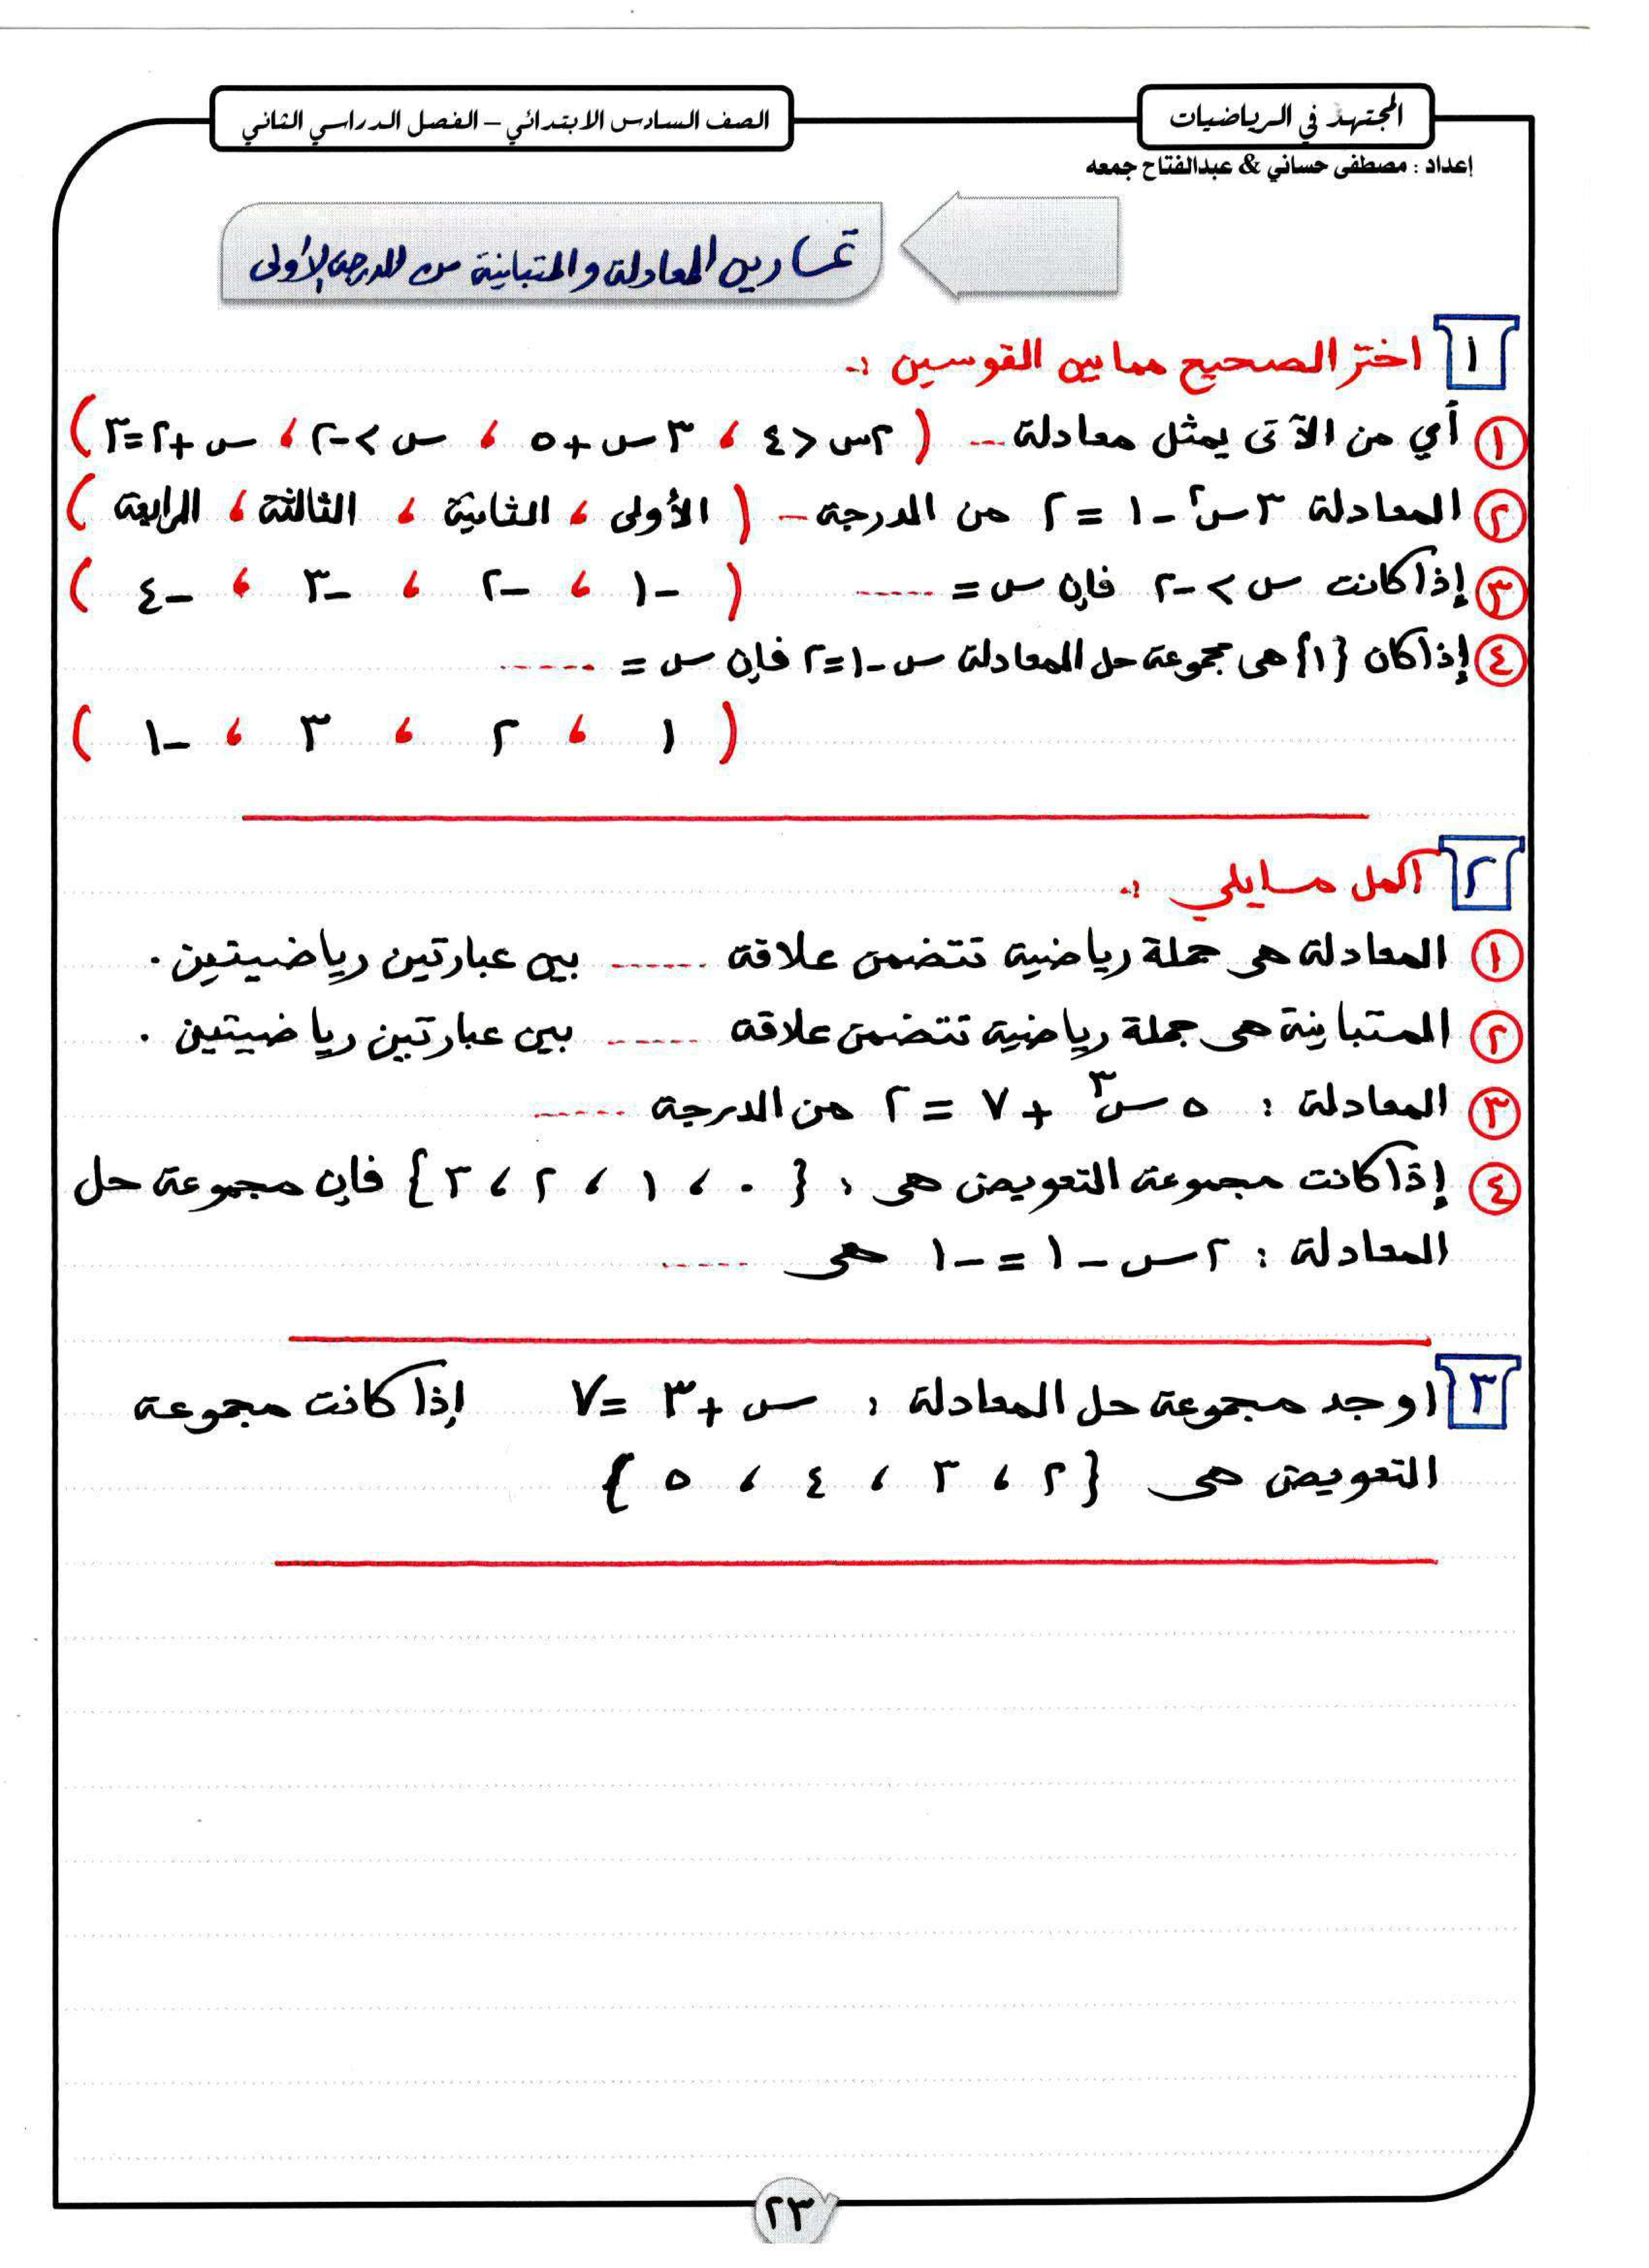 المجتهد في الرياضيات
الصف السادس الابتدائي – الفصل الدراسي الثاني
إعداد : مصطفى حساني & عبدالفتاح جمعه
تمارين المعادلة والمتباينة من الدرجة الأولى
١ اختر الصحيح مما بين القوسين :-
١ أي من الآتى يمثل معادلة ... ( ٢س < ٤ ، ٣س + ٥ ، س > -٢ ، س + ٢ = ٣ )
٢ المعادلة ٣س٢ - ١ = ٢ من الدرجة - ( الأولى ، الثانية ، الثالثة ، الرابعة )
٣ إذا كانت س > -٢ فإن س = ...... ( -١ ، -٢ ، -٣ ، -٤ )
٤ إذا كان {١} هى مجموعة حل المعادلة س - ١ = ٢ فإن س = ......
( ١ ، ٢ ، ٣ ، -١ )
٢ أكمل مايلي :-
١ المعادلة هى جملة رياضية تتضمن علاقة ...... بين عبارتين رياضيتين .
٢ المتباينة هى جملة رياضية تتضمن علاقة ...... بين عبارتين رياضيتين .
٣ المعادلة : ٥س٣ + ٧ = ٢ من الدرجة ......
٤ إذا كانت مجموعة التعويض هى : { ٠ ، ١ ، ٢ ، ٣ } فإن مجموعة حل
المعادلة : ٢س - ١ = -١ هى ......
٣ اوجد مجموعة حل المعادلة : س + ٣ = ٧ إذا كانت مجموعة
التعويض هى { ٢ ، ٣ ، ٤ ، ٥ }
٢٣